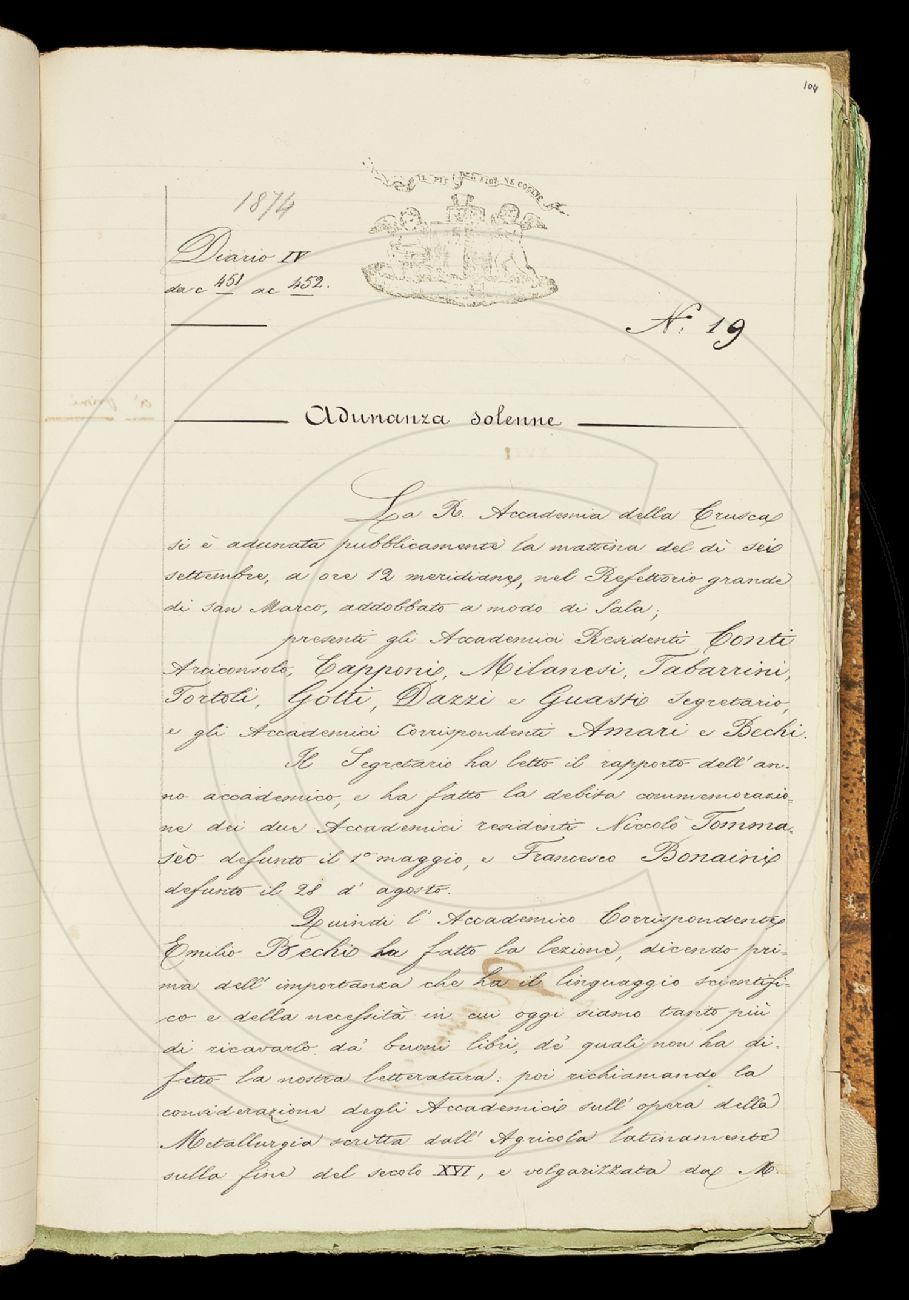 104
1874
IL PIÙ BEL FIOR NE COGLIE
Diario IV
da c 451 a c 452.
N. 19
Adunanza solenne
La R. Accademia della Crusca
si è adunata pubblicamente la mattina del dì sei
settembre, a ore 12 meridiane, nel Refettorio grande
di San Marco, addobbato a modo di Sala;
presenti gli Accademici Residenti Conti
Arciconsolo, Capponi, Milanesi, Tabarrini,
Tortoli, Gotti, Dazzi e Guasti Segretario,
e gli Accademici Corrispondenti Amari e Bechi.
Il Segretario ha letto il rapporto dell'an-
no accademico, e ha fatto la debita commemorazio-
ne dei due Accademici residenti Niccolò Tomma-
sèo defunto il 1° maggio, e Francesco Bonaini
defunto il 28 d'agosto.
Quindi l'Accademico Corrispondente
Emilio Bechi ha fatto la lezione, dicendo pri-
ma dell'importanza che ha il linguaggio scientifi-
co e della necessità in cui oggi siamo tanto più
di ricavarlo da' buoni libri, de' quali non ha di-
fetto la nostra letteratura: poi richiamando la
considerazione degli Accademici sull'opera della
Metallurgia scritta dall'Agricola latinamente
sulla fine del secolo XVI, e volgarizzata da M.